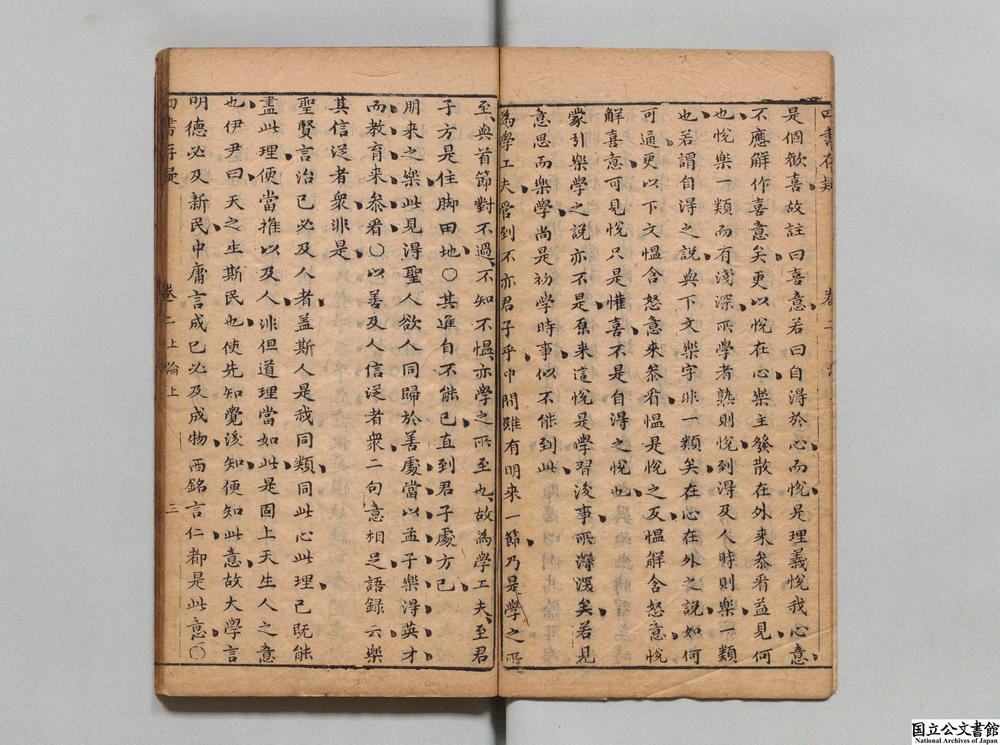 是個歡喜故註曰喜意若曰自得於心而悅是理義悅我心意
不應解作喜意矣更以悅在心樂主發散在外來參看益見何
也悅樂一類而有淺深所學者熟則悅到得及人時則樂一類
也若謂自得之說與下文樂字非一類矣在心在外之說如何
可通更以下文慍含怒意來參看慍是悅之反慍解含怒意悅
解喜意可見悅只是懽喜不是自得之悅也
蒙引樂學之說亦不是原來這悅是學習後事所得深矣若見
意思而樂學尚是初學時事似不能到此
為學工夫管到不亦君子乎中間雖有朋來一節乃是學之所
至與首節對不過不知不慍亦學之所至也故為學工夫至君
子方是住脚田地〇其進自不能已直到君子處方已
朋來之樂此見得聖人欲人同歸於善處當以孟子樂得英才
而教育來參看〇以善及人信從者衆二句意相足語錄云樂
其信從者衆非是
聖賢言治己必及人者蓋斯人是我同類同此心此理己既能
盡此理便當推以及人非但道理當如此是固上天生人之意
也伊尹曰天之生斯民也使先知覺後知便知此意故大學言
明德必及新民中庸言成己必及成物西銘言仁都是此意〇
四書存疑 卷二上論上 三
国立公文書館
National Archives of Japan